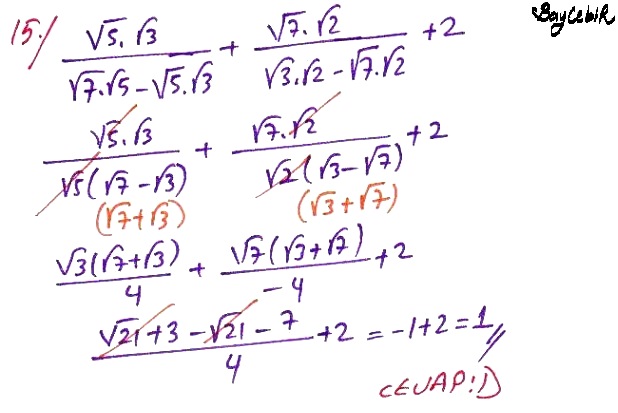 BayCebiR
15-) (√5.√3)/(√7.√5-√5.√3) + (√7.√2)/(√3.√2-√7.√2) +2
(√5.√3)/(√5(√7-√3)) + (√7.√2)/(√2(√3-√7)) +2
(√7+√3) (√3+√7)
(√3(√7+√3))/4 + (√7(√3+√7))/-4 +2
(√21+3-√21-7)/4 +2 = -1+2=1//
CEVAP:D